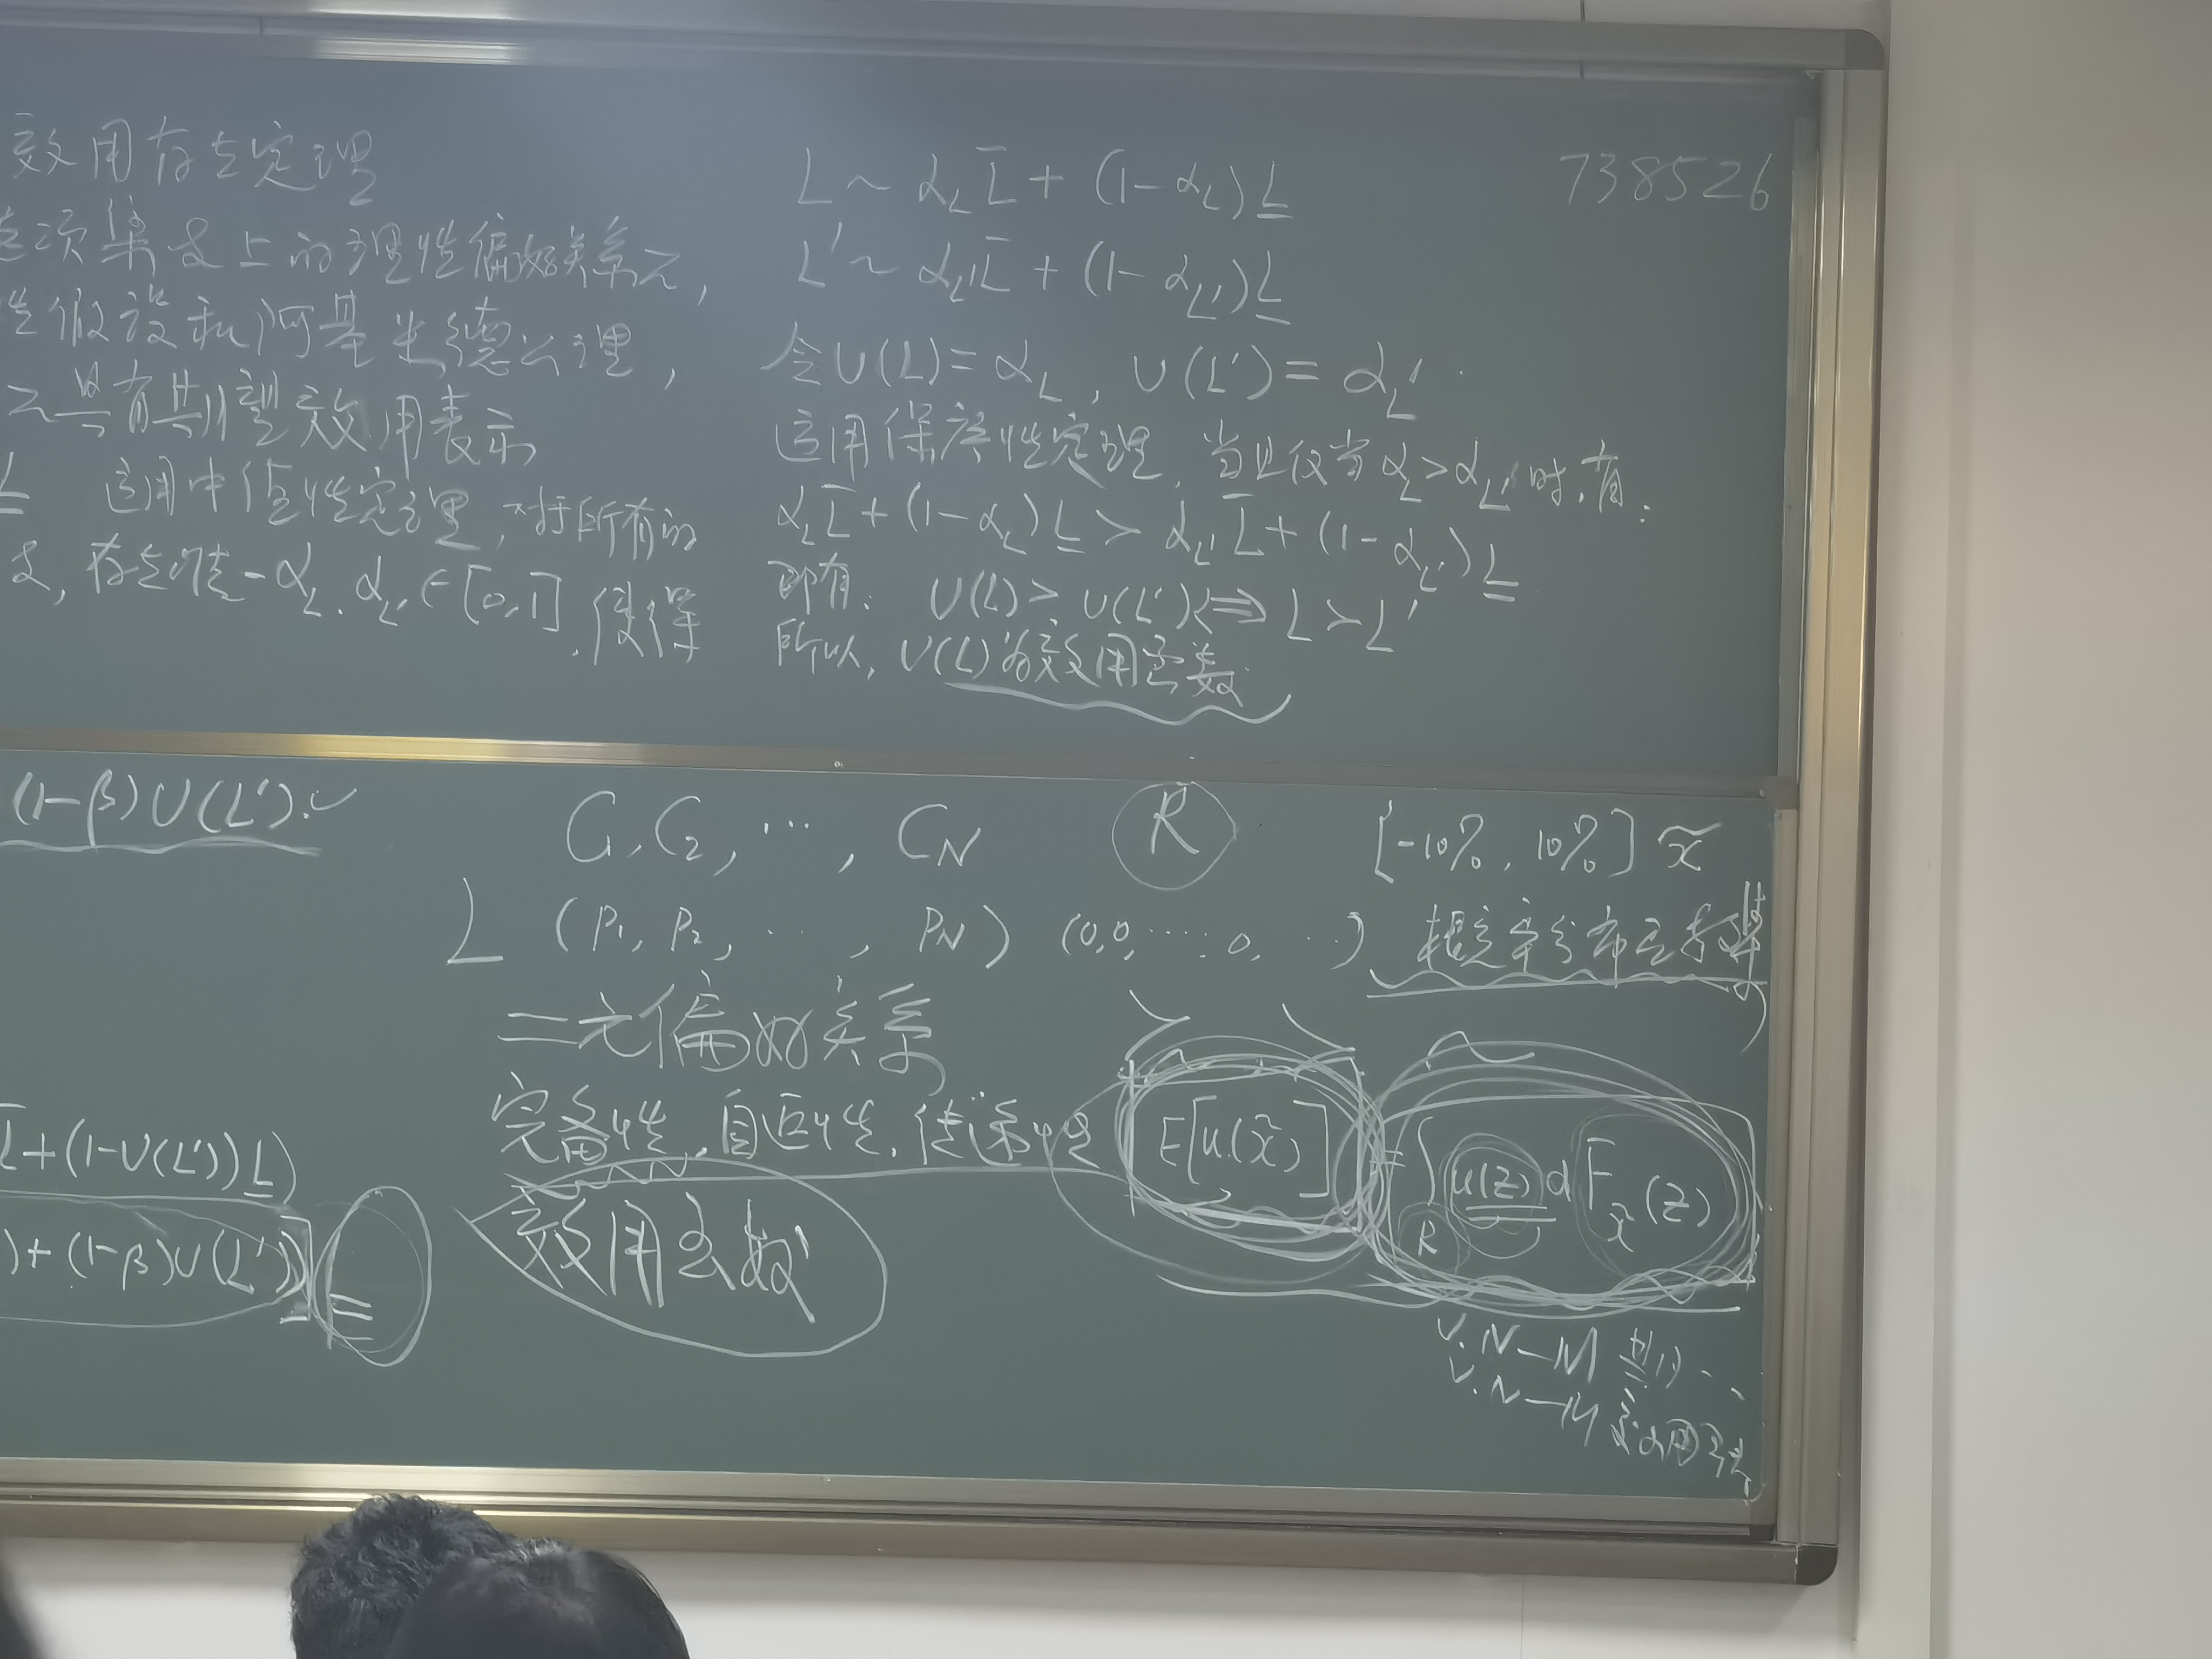 效用存在定理
选项集 上的理性偏好关系≿,
性假设和阿基米德公理,
≿具有期望效用表示
L̲ 运用中值性定理,对于所有的
存在唯一α_L, α_L' ∈ [0,1], 使得
L ~ α_L L̄ + (1-α_L)L̲
L' ~ α_L' L̄ + (1-α_L')L̲
令U(L)=α_L, U(L')=α_L'.
运用保序性定理,当且仅当α_L>α_L'时,有:
α_L L̄+(1-α_L)L̲ > α_L' L̄+(1-α_L')L̲
即有: U(L)>U(L')⟺L≻L'
所以, U(L)为效用函数
738526
(1-β)U(L').✓
L̄+(1-U(L'))L̲)
)+(1-β)U(L')]
C₁,C₂,⋯,C_N
L (P₁,P₂,⋯,P_N) (0,0,⋯0,⋯)
二元偏好关系
完备性,自返性,传递性
效用函数
R
[-10%,10%] x̃
概率分布函数
E[u(x̃)] = ∫_R u(z)dF_x̃(z)
V.N-M 期
V.N-M 效用函